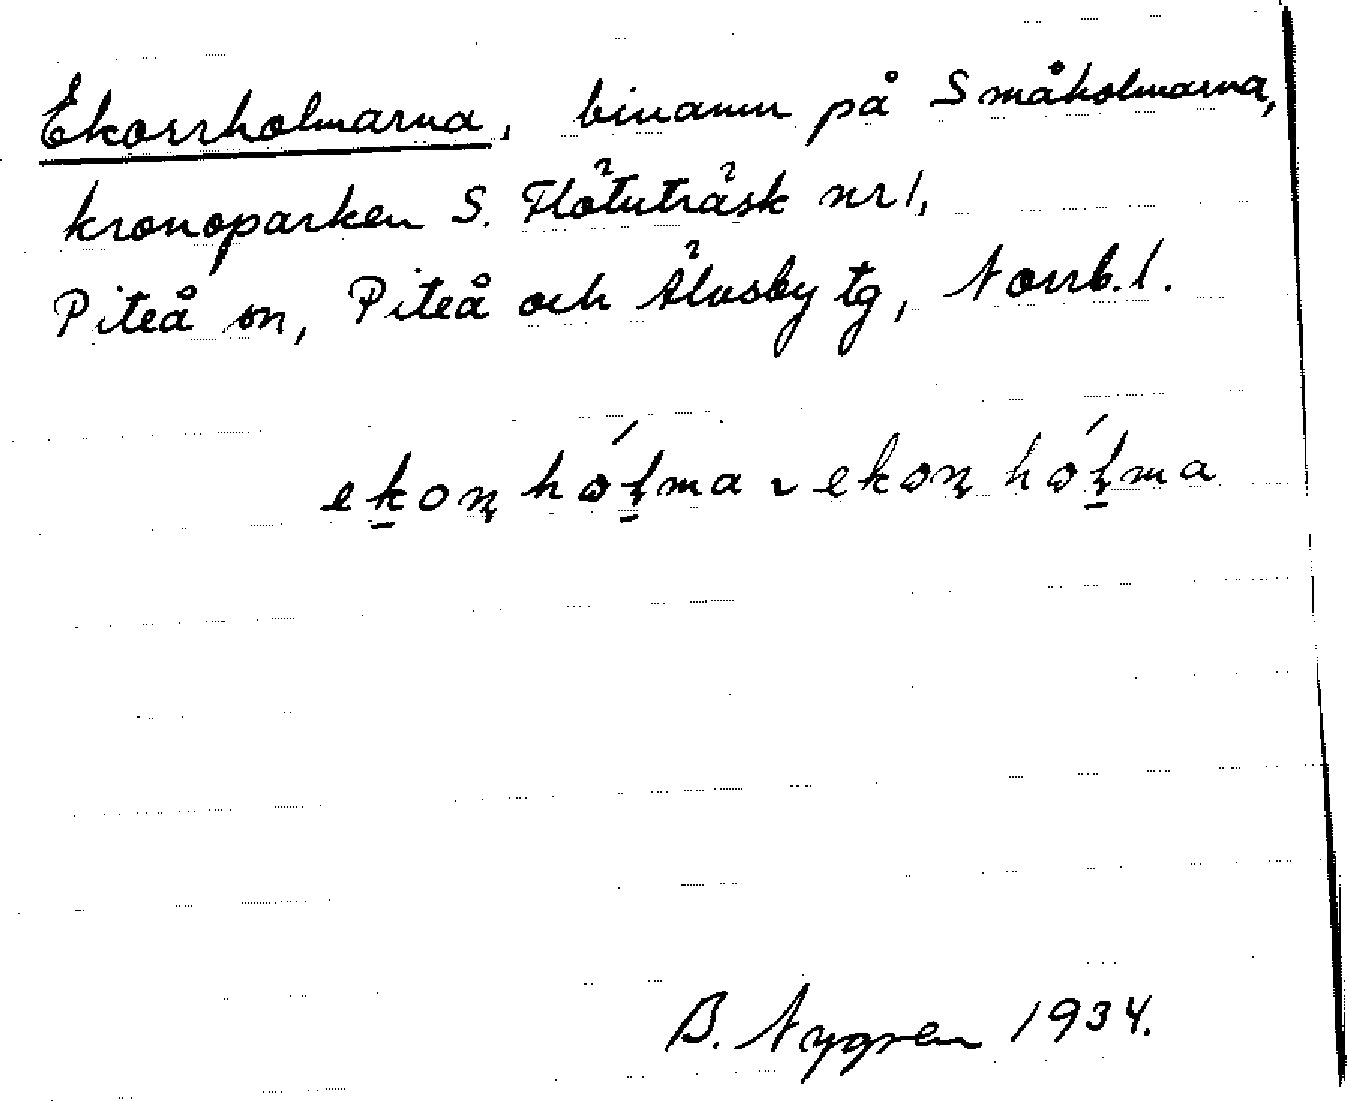 Ekorrholmarna, binamn på Småholmarna,
kronoparken S. Flötuträsk nr 1,
Piteå sn, Piteå och Älvsby tg, Norrb. l.
ekoṇ hóḷma ~ ekoṇ hóḷma
B. Nygren 1934.